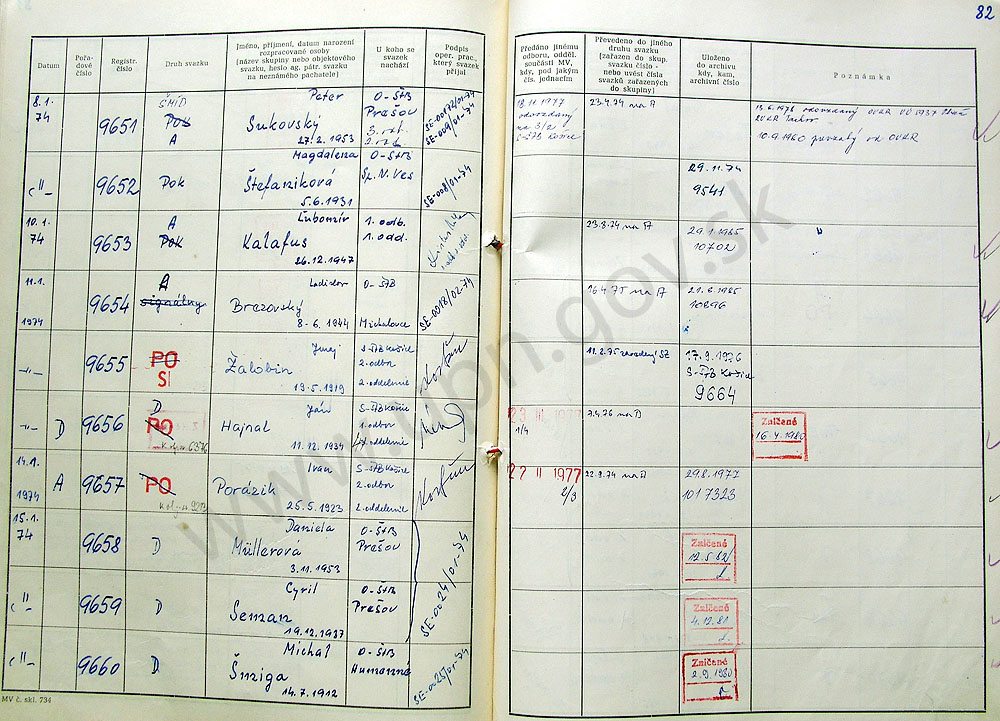 82
Datum
Pořadové číslo
Registr. číslo
Druh svazku
Jméno, příjmení, datum narození rozpracované osoby (název skupiny nebo objektového svazku, heslo ag. pátr. svazku na neznámého pachatele)
U koho se svazek nachází
Podpis oper. prac., který svazek přijal
Předáno jinému odboru, součásti MV, kdy, pod jakým čís. jednacím
Převedeno do jiného druhu svazku (zařazen do skup. svazku číslo - nebo uvést čísla svazků zařazených do skupiny)
Uloženo do archivu kdy, kam, archivní číslo
Poznámka
8.1.
74
9651
ŠMÍD
Pok
A
Peter
Sukovský
27.2.1953
O-ŠtB
Prešov
SE-00172/01-74
SE-009/01-74
18.11.1977
na 3/2
S-ŠtB Košice
23.4.74 na A
10.9.1980
9652
Pok
Magdaléna
Štefaniková
5.6.1931
O-ŠtB
Sp. N. Ves
SE-008/01-74
29.11.74
9541
10.1.
74
9653
A
Pok
Ľubomír
Kalafus
26.12.1947
1. odb.
1. odd.
23.8.74 na A
29.1.1985
10702
11.1.
1974
9654
A
signálny
Ladislav
Brezovský
8-6.1944
O-ŠtB
Michalovce
SE-0018/02-74
16.4.75 na A
21.8.1985
10896
-"-
9655
PO
SI
Juraj
Žalobin
19.5.1919
S-ŠtB Košice
2. odbor
2. oddelenie
11.2.75 zavedený SZ
17.9.1976
S-ŠtB Košice
9664
-"-
D
9656
D
PO
Ján
Hajnal
11.12.1934
S-ŠtB Košice
1. odbor
oddelenie
23 III 1977
1/4
7.4.76 na D
Zničené
16.4.1980
14.1.
1974
A
9657
PO
Ivan
Porázik
25.5.1923
S-ŠtB Košice
2. odbor
2. oddelenie
Korfun
22 II 1977
2/3
22.8.74 na A
29.8.1977
1017323
15.1.
74
9658
D
Daniela
Müllerová
3.11.1953
O-ŠtB
Prešov
SE-0024/01-74
Zničené
12.5.82
-"-
9659
D
Cyril
Seman
19.12.1937
O-ŠtB
Prešov
Zničené
4.12.81
-"-
9660
D
Michal
Šmiga
14.7.1912
O-ŠtB
Humenné
SE-0025/01-74
Zničené
2.9.1980
MV č. skl. 734
www.upn.gov.sk